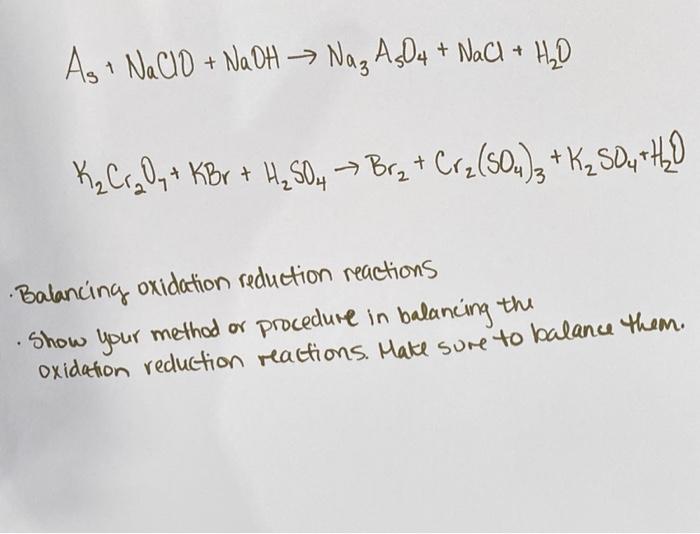 As + NaClO + NaOH → Na₃AsO₄ + NaCl + H₂O
K₂Cr₂O₇ + KBr + H₂SO₄ → Br₂ + Cr₂(SO₄)₃ + K₂SO₄ + H₂O
· Balancing oxidation reduction reactions
· Show your method or procedure in balancing the
oxidation reduction reactions. Make sure to balance them.